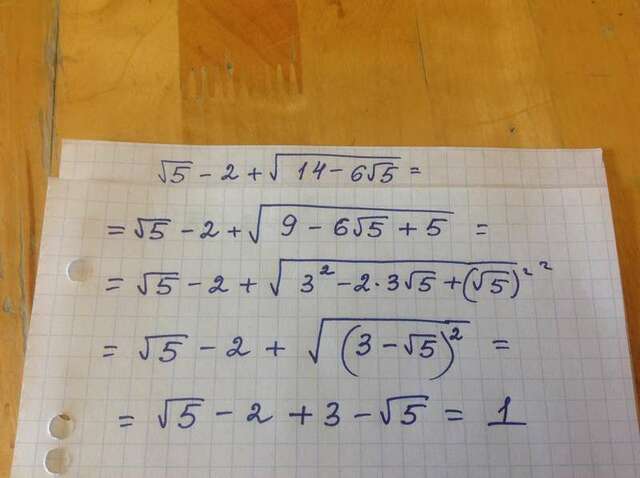 √5 - 2 + √(14 - 6√5) =
= √5 - 2 + √(9 - 6√5 + 5) =
= √5 - 2 + √(3² - 2·3√5 + (√5)²) =
= √5 - 2 + √((3 - √5)²) =
= √5 - 2 + 3 - √5 = 1